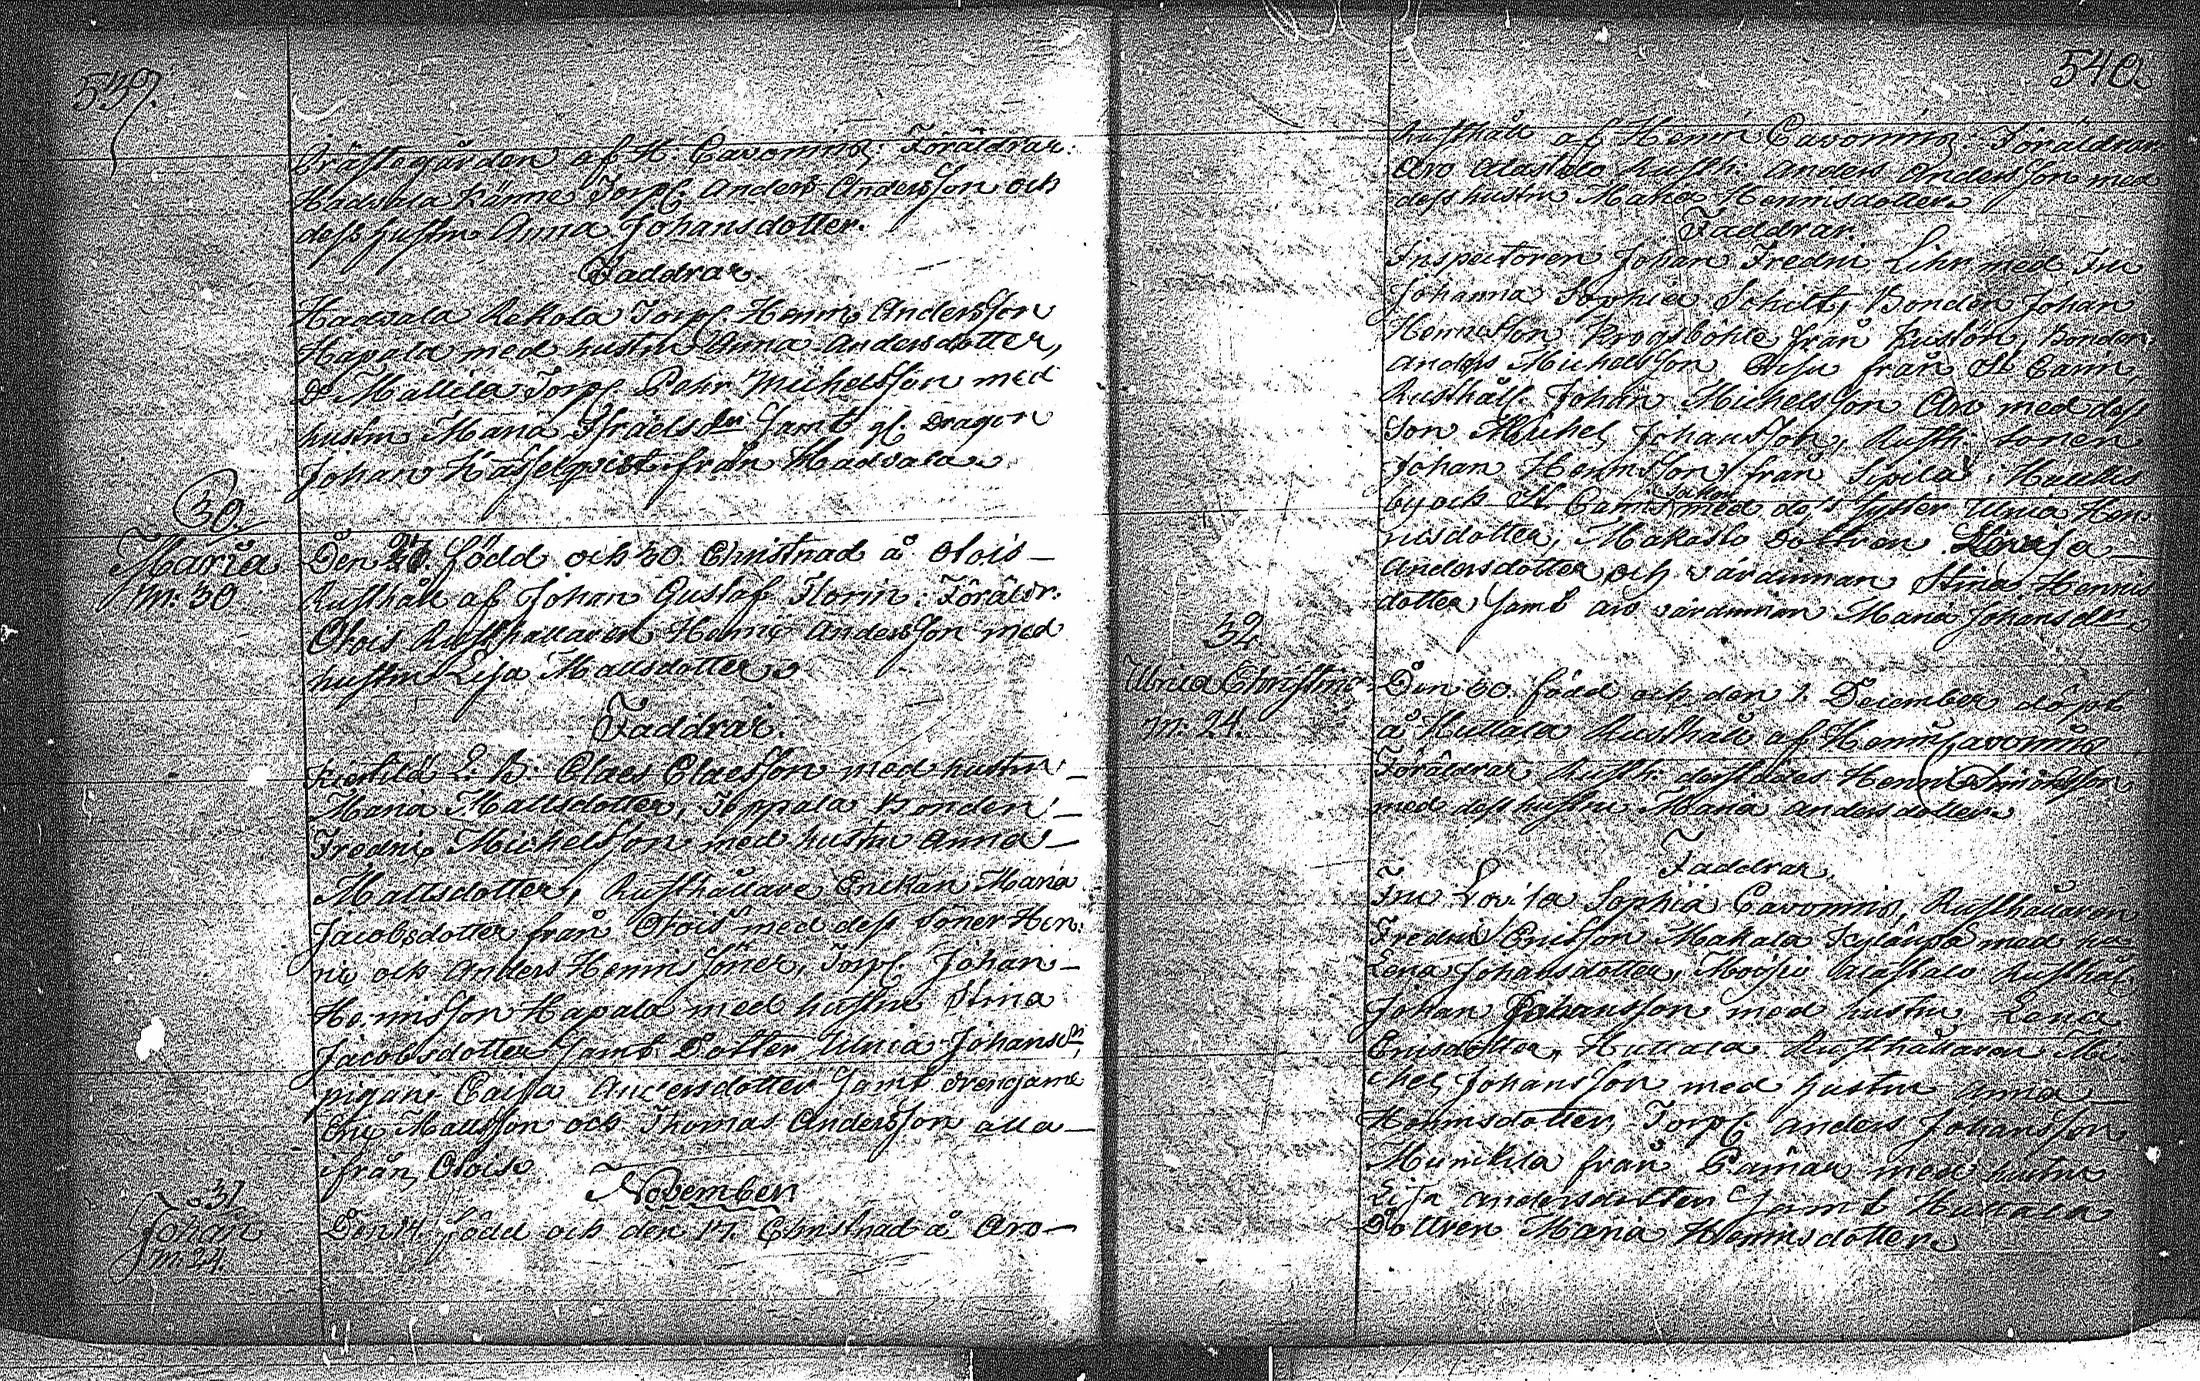 539.
Prästegården af H. Cavonius. Föräldrar:
Hadvala Torp. Anders Andersson och
dess hustru Anna Johansdotter.
Faddrar.
Hadvala Rekola Torp. Henric Andersson
Hapala med hustru Anna Andersdotter,
Do Mallila Torp. Pehr Michelsson med
hustru Maria Israelsdr samt gl. Dragon
Johan Hasselqvist från Hadvala.
30.
Maria
m. 30
Den 27. född och 30. Christnad å Olois
Rusthåll af Johan Gustaf Florin. Föräldr.
Olois Rusthållaren Henric Andersson med
hustru Lisa Mattsdotter.
Faddrar.
L. B. Claes Claesson med hustru
Maria Mattsdotter, Toppala Bonden
Fredric Michelsson med hustru Anna
Mattsdotter, Rusthållare Enckan Maria
Jacobsdotter från Olois med dess Söner Hen-
ric och Anders Henrics Söner, Torp. Johan
Henricsson Hapala med hustru Stina
Jacobsdotter samt Dotter Ulrica Johansdr,
pigan Caisa Andersdotter samt drengarne
Eric Mattsson och Thomas Andersson alla
ifrån Olois.
November
31.
Johan
m. 24.
Den 14. född och den 17. Christnad å Aro
540
Rusthåll af Henric Cavonius. Föräldrar
Aro Alastalo Rusth. Anders Andersson med
dess hustru Maria Henricsdotter.
Faddrar.
Inspectoren Johan Fredric Lihr med Fru
Johanna Sophia Schilt, Bonden Johan
Henricsson Krogsböhle från Kustön, Bonden
Anders Michelsson från St Carin,
Rusthåll. Johan Michelsson Aro med dess
Son Michel Johansson, Rusth. Sonen
Johan Henricsson från Sipilä i
by och St. Carins Sokn med dess Syster Ulrica Hen-
ricsdotter, Makasto Dottren Lovisa
Andersdotter och värdinnan Stina Henrics
dotter samt Aro värdinnan Maria Johansdr.
32
Ulrica Christina
m. 24.
Den 30. född och den 1. December döpt
å Huttala Rusthåll af Henric Cavonius
Föräldrar Rusth. dersstädes Henric
med dess hustru Maria Andersdotter.
Faddrar.
Fru Lovisa Sophia Cavonius, Rusthållaren
Fredric Ericsson Makala Kylänpä med hu
Lena Johansdotter, Moisio Alastalo Rusthåll.
Johan Johansson med hustru Lena
Ericsdotter, Huttala Rusthållaren Mi-
chel Johansson med hustru Anna
Henricsdotter, Torp. Anders Johansson
Munckila från Pämar med hustru
Lisa Andersdotter samt Huttala
Dottren Maria Henricsdotter.